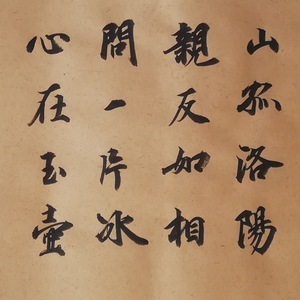 山孤洛陽
親友如相
問一片冰
心在玉壺